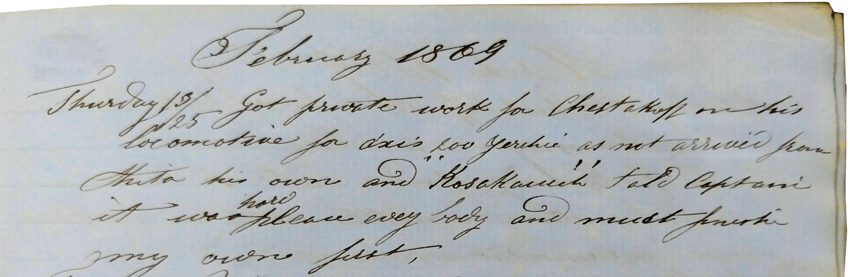 February 1869
Thursday 13/25 Got private work for Chestakoff on his
locomotive for as not arrived from
his own and "Kosakawich" Told Captain
it was hard please evey body and must finish
my own first,